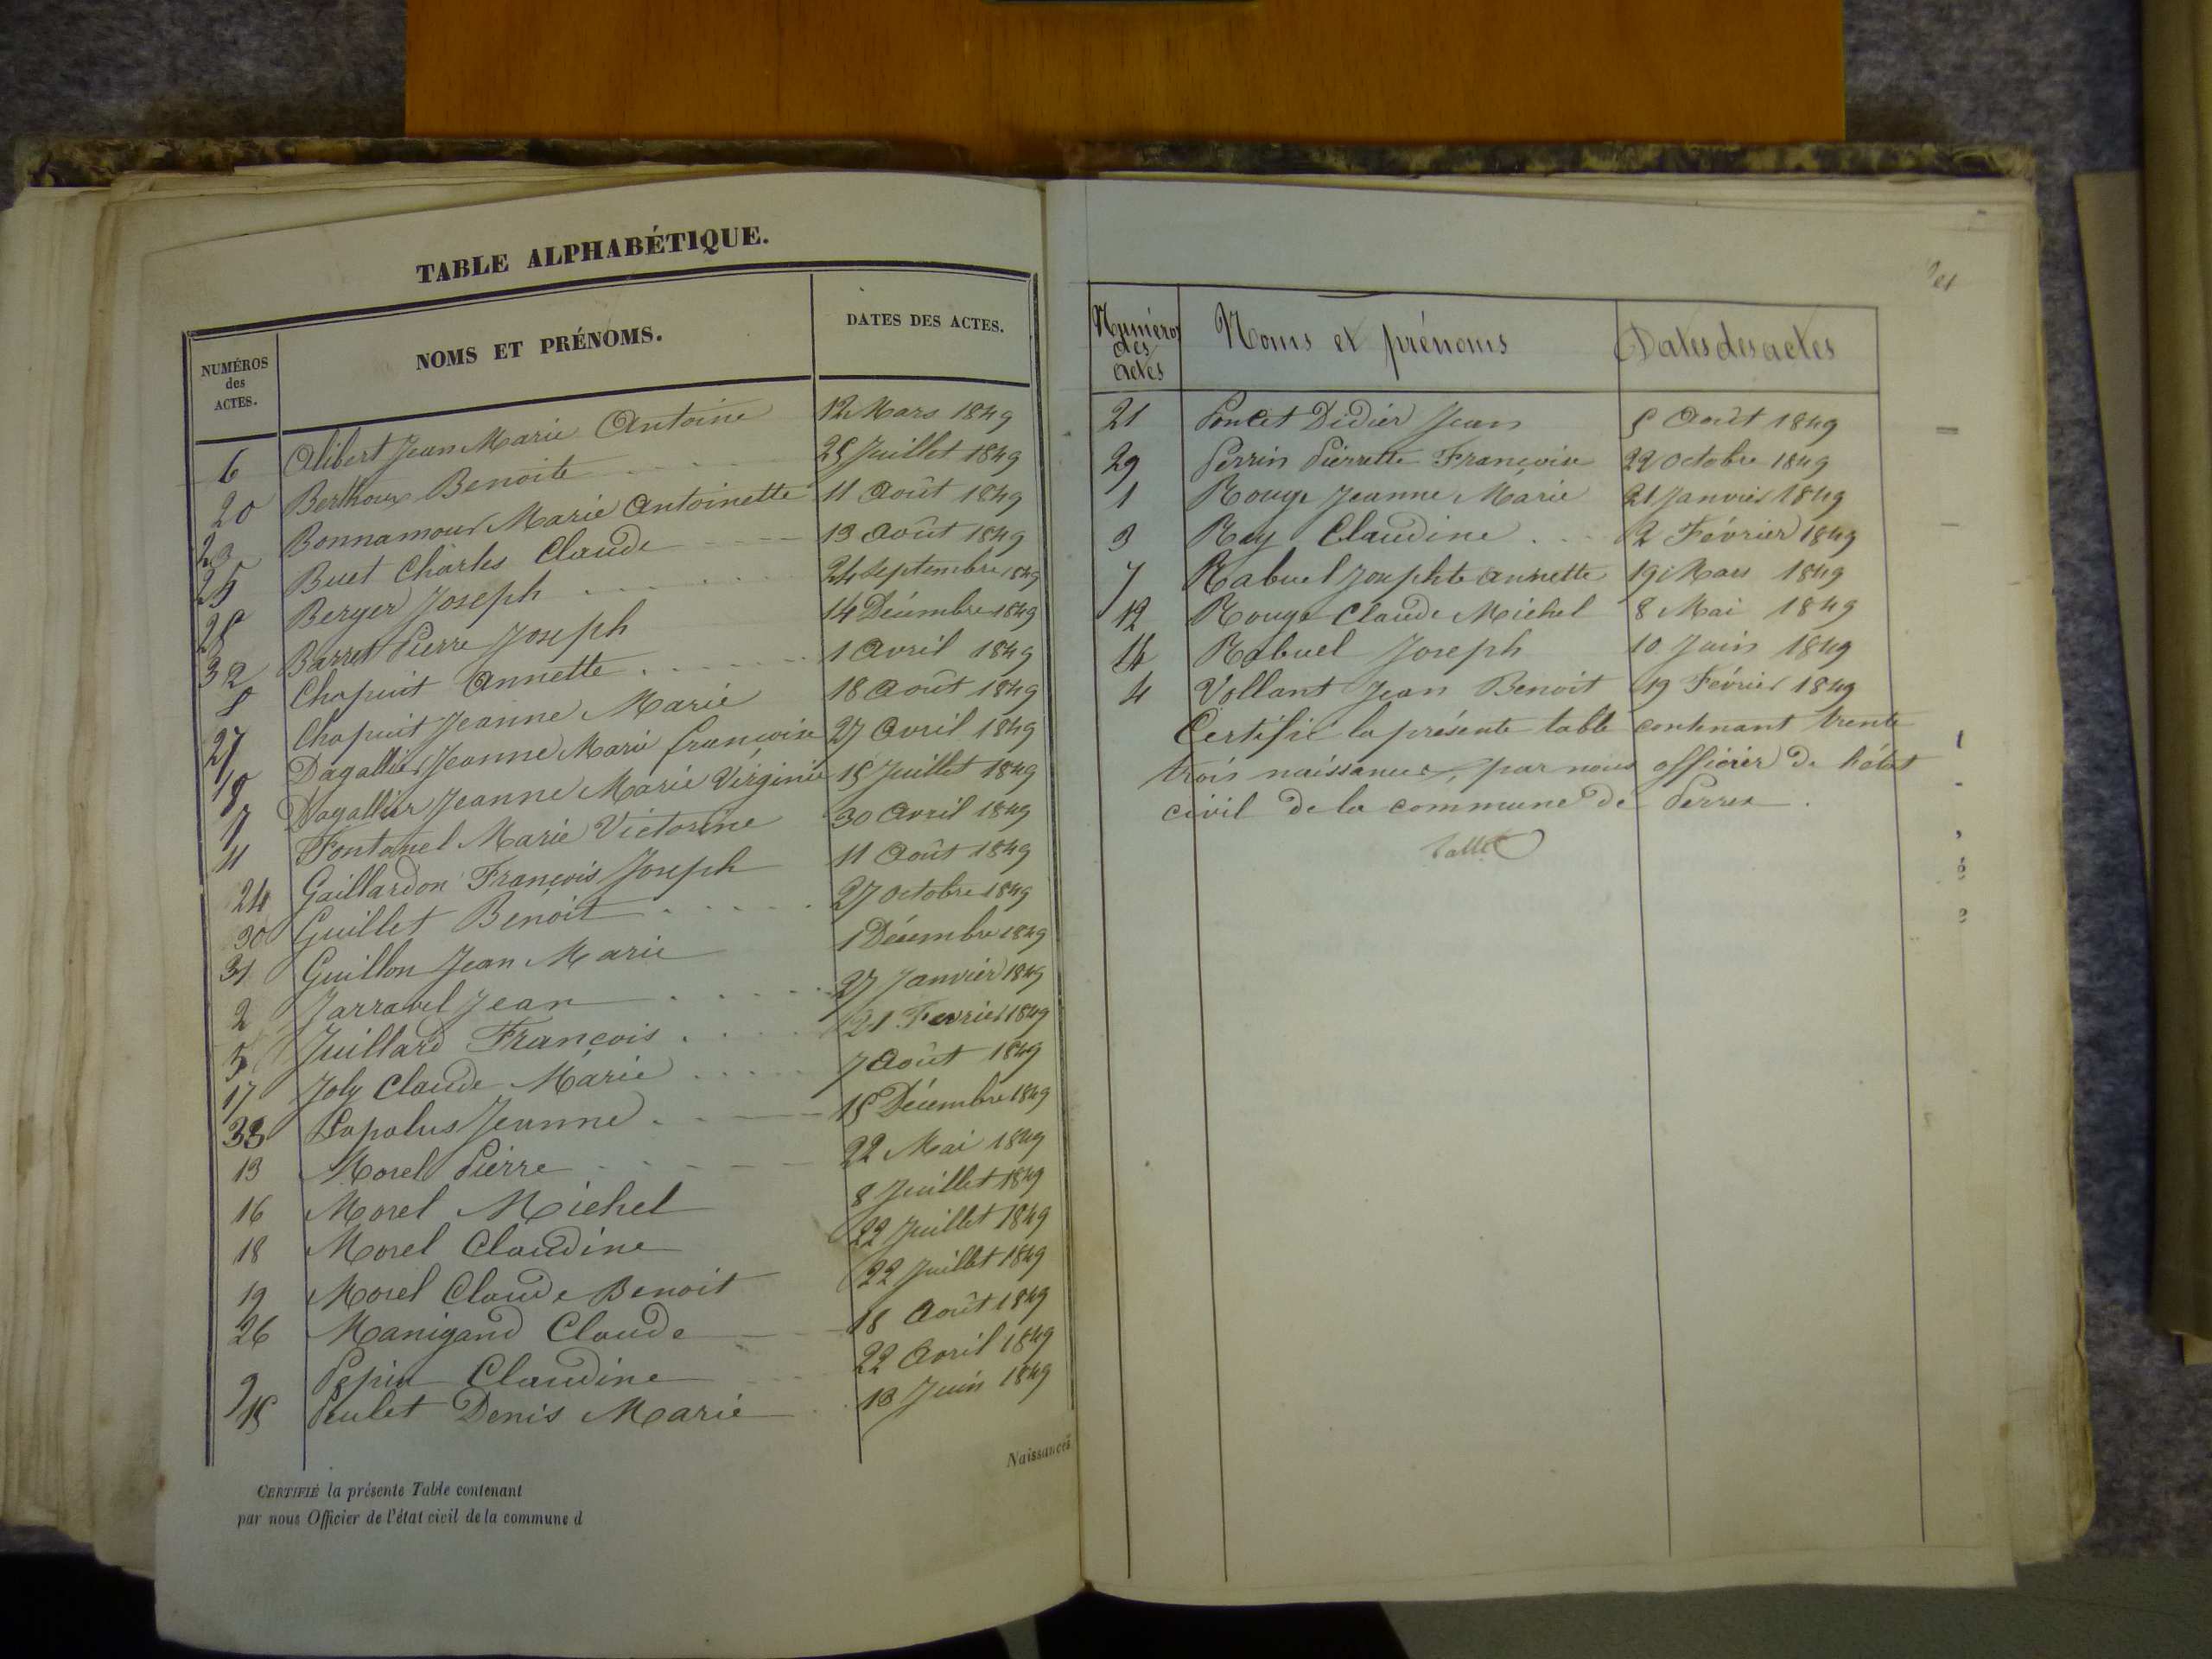 TABLE ALPHABÉTIQUE.
NUMÉROS des ACTES. NOMS ET PRÉNOMS. DATES DES ACTES.
6 Alibert Jean Marie Antoine 12 Mars 1849
20 Berthoux Benoite 25 Juillet 1849
23 Bonnamour Marie Antoinette 11 Août 1849
25 Buet Charles Claude 13 Août 1849
28 Berger Joseph 24 Septembre 1849
32 Barret Pierre Joseph 14 Décembre 1849
8 Chapuit Annette 1 Avril 1849
27 Chapuit Jeanne Marie 18 Août 1849
10 Dagallier Jeanne Marie françoise 27 Avril 1849
17 Dagallier Jeanne Marie Virginie 15 Juillet 1849
11 Fontanel Marie Victorine 30 Avril 1849
24 Gaillardon François Joseph 11 Août 1849
30 Guillet Benoit 27 Octobre 1849
31 Guillon Jean Marie 1 Décembre 1849
2 Jarravel Jean 27 Janvier 1849
5 Juillard François 21 Fevrier 1849
17 Joly Claude Marie 7 Août 1849
33 Lapalus Jeanne 15 Décembre 1849
13 Morel Pierre 22 Mai 1849
16 Morel Michel 8 Juillet 1849
18 Morel Claudine 22 Juillet 1849
19 Morel Claude Benoit 22 Juillet 1849
26 Manigand Claude 18 Août 1849
9 Pepin Claudine 22 Avril 1849
15 Peulet Denis Marie 13 Juin 1849
Naissances
CERTIFIÉ la présente Table contenant
par nous Officier de l'état civil de la commune d
Numéros des actes Noms et prénoms Dates des actes
21 Poncet Didier Jean 5 Août 1849
29 Perrin Pierrette Françoise 22 Octobre 1849
1 Rouge Jeanne Marie 21 Janvier 1849
3 Ray Claudine 2 Février 1849
7 Rabuel Josephte Annette 19 Mars 1849
12 Rouge Claude Michel 8 Mai 1849
14 Rabuel Joseph 10 Juin 1849
4 Vollant Jean Benoit 19 Février 1849
Certifié la présente table contenant trente
trois naissances, par nous officier de l'état
civil de la commune de Perrex.